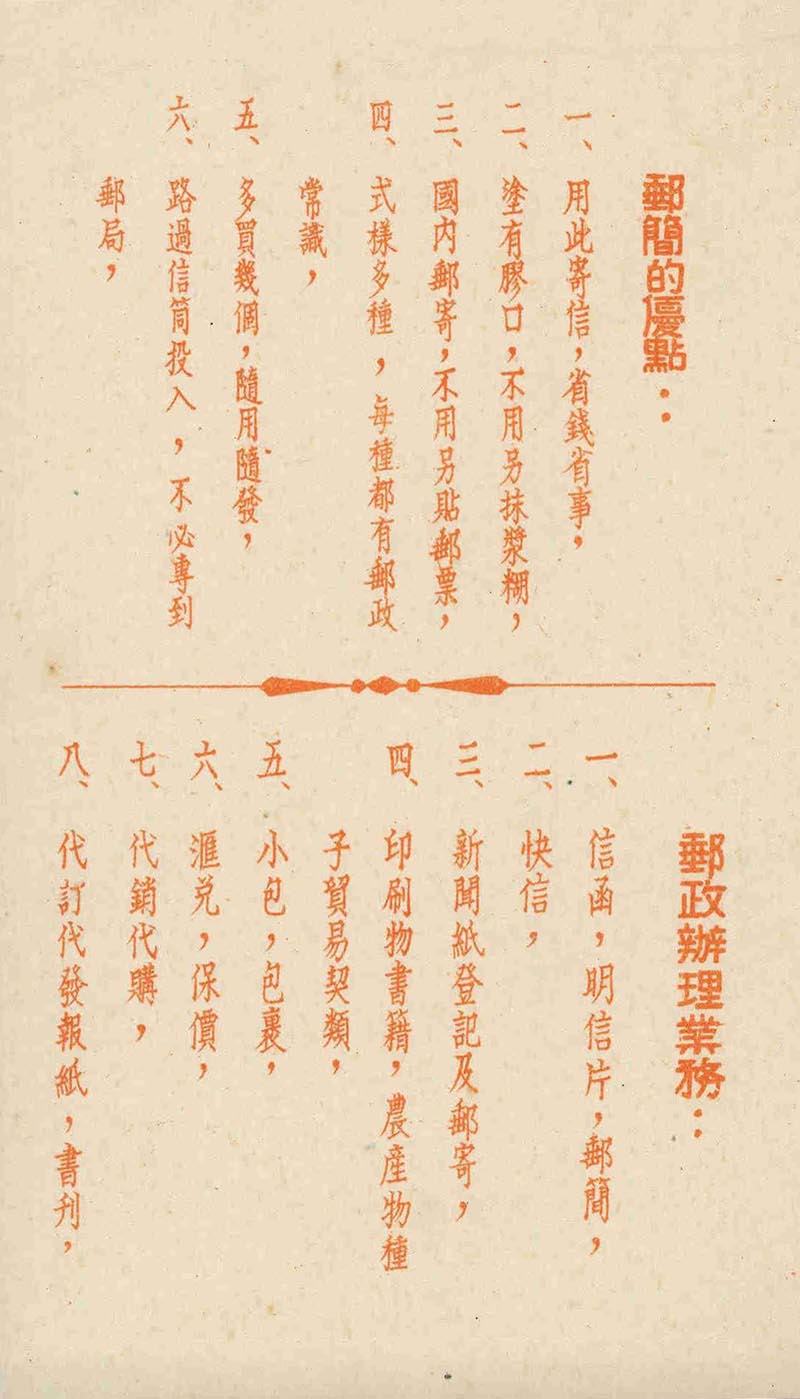 郵簡的優點：
一、用此寄信，省錢省事，
二、塗有膠口，不用另抹漿糊，
三、國內郵寄，不用另貼郵票，
四、式樣多種，每種都有郵政
常識，
五、多買幾個，隨用隨發，
六、路過信筒投入，不必專到
郵局，
郵政辦理業務：
一、信函，明信片，郵簡，
二、快信，
三、新聞紙登記及郵寄，
四、印刷物書籍，農產物種
子貿易契類，
五、小包，包裹，
六、滙兌，保價，
七、代銷代購，
八、代訂代發報紙，書刊，